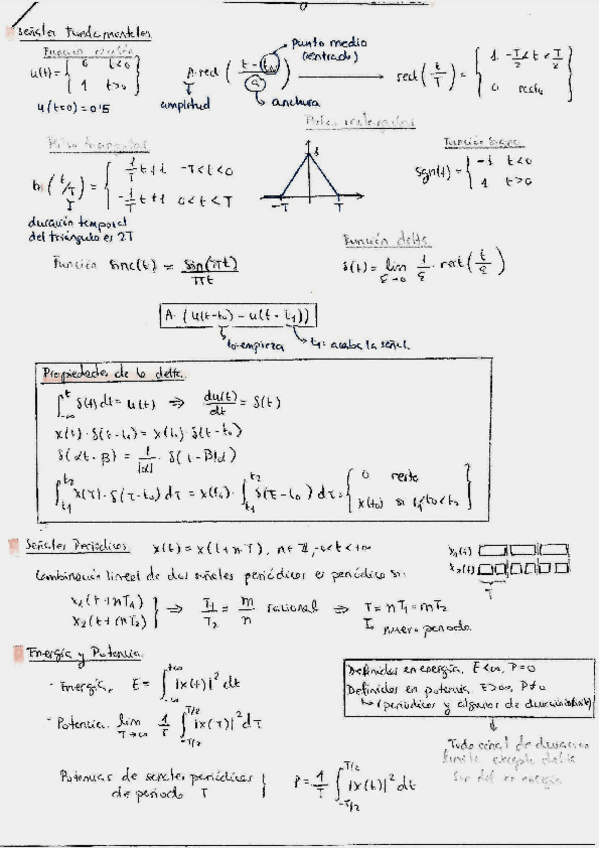 Señales Fundamentales
Función escalón
u(t)= { 0 t<0
1 t>0
u(t=0)=0'5
A·rect ( (t-t₀)/a )
punto medio
(centrado)
amplitud
anchura
rect(t/T) = { 1 -T/2<t<T/2
0 resto
Pulso rectangular
Pulso triangular
(t/T) = { 1/T t+1 -T<t<0
-1/T t+1 0<t<T
duración temporal
del triángulo es 2T
1
-T T
Función signo
sgn(t)= { -1 t<0
1 t>0
Función sinc(t) = sin(πt)/πt
Función delta
δ(t)= lim ε→0 1/ε · rect(t/ε)
A· (u(t-t₀) - u(t-t₁))
t₀ empieza
t₁: acaba la señal.
Propiedades de la delta
∫_{-∞}^{t} δ(t)dt = u(t) ⇒ du(t)/dt = δ(t)
x(t)·δ(t-t₀) = x(t₀)·δ(t-t₀)
δ(αt-β) = 1/|α| · δ(t-β/α)
∫_{t1}^{t2} x(τ)·δ(τ-t₀) dτ = x(t₀)·∫_{t1}^{t2} δ(τ-t₀) dτ = { 0 resto
x(t₀) si t₁<t₀<t₂
Señales Periódicas: x(t) = x(t+nT), n∈Z, -∞<t<+∞
x₁(t)
x₂(t)
T
Combinación lineal de dos señales periódicas es periódica si:
x₁(t+nT₁)
x₂(t+mT₂) } ⇒ T₁/T₂ = m/n racional ⇒ T = nT₁ = mT₂
nuevo periodo.
Energía y Potencia
- Energía. E = ∫_{-∞}^{+∞} |x(t)|² dt
- Potencia. lim T→∞ 1/T ∫_{-T/2}^{T/2} |x(τ)|² dτ
Definidas en energía. E<∞, P=0
Definidas en potencia. E→∞, P≠0
(periódicas y algunas de duración)
Toda señal de duración
finita excepto delta
def en energía
Potencias de señales periódicas
de periodo T } P = 1/T ∫_{-T/2}^{T/2} |x(t)|² dt